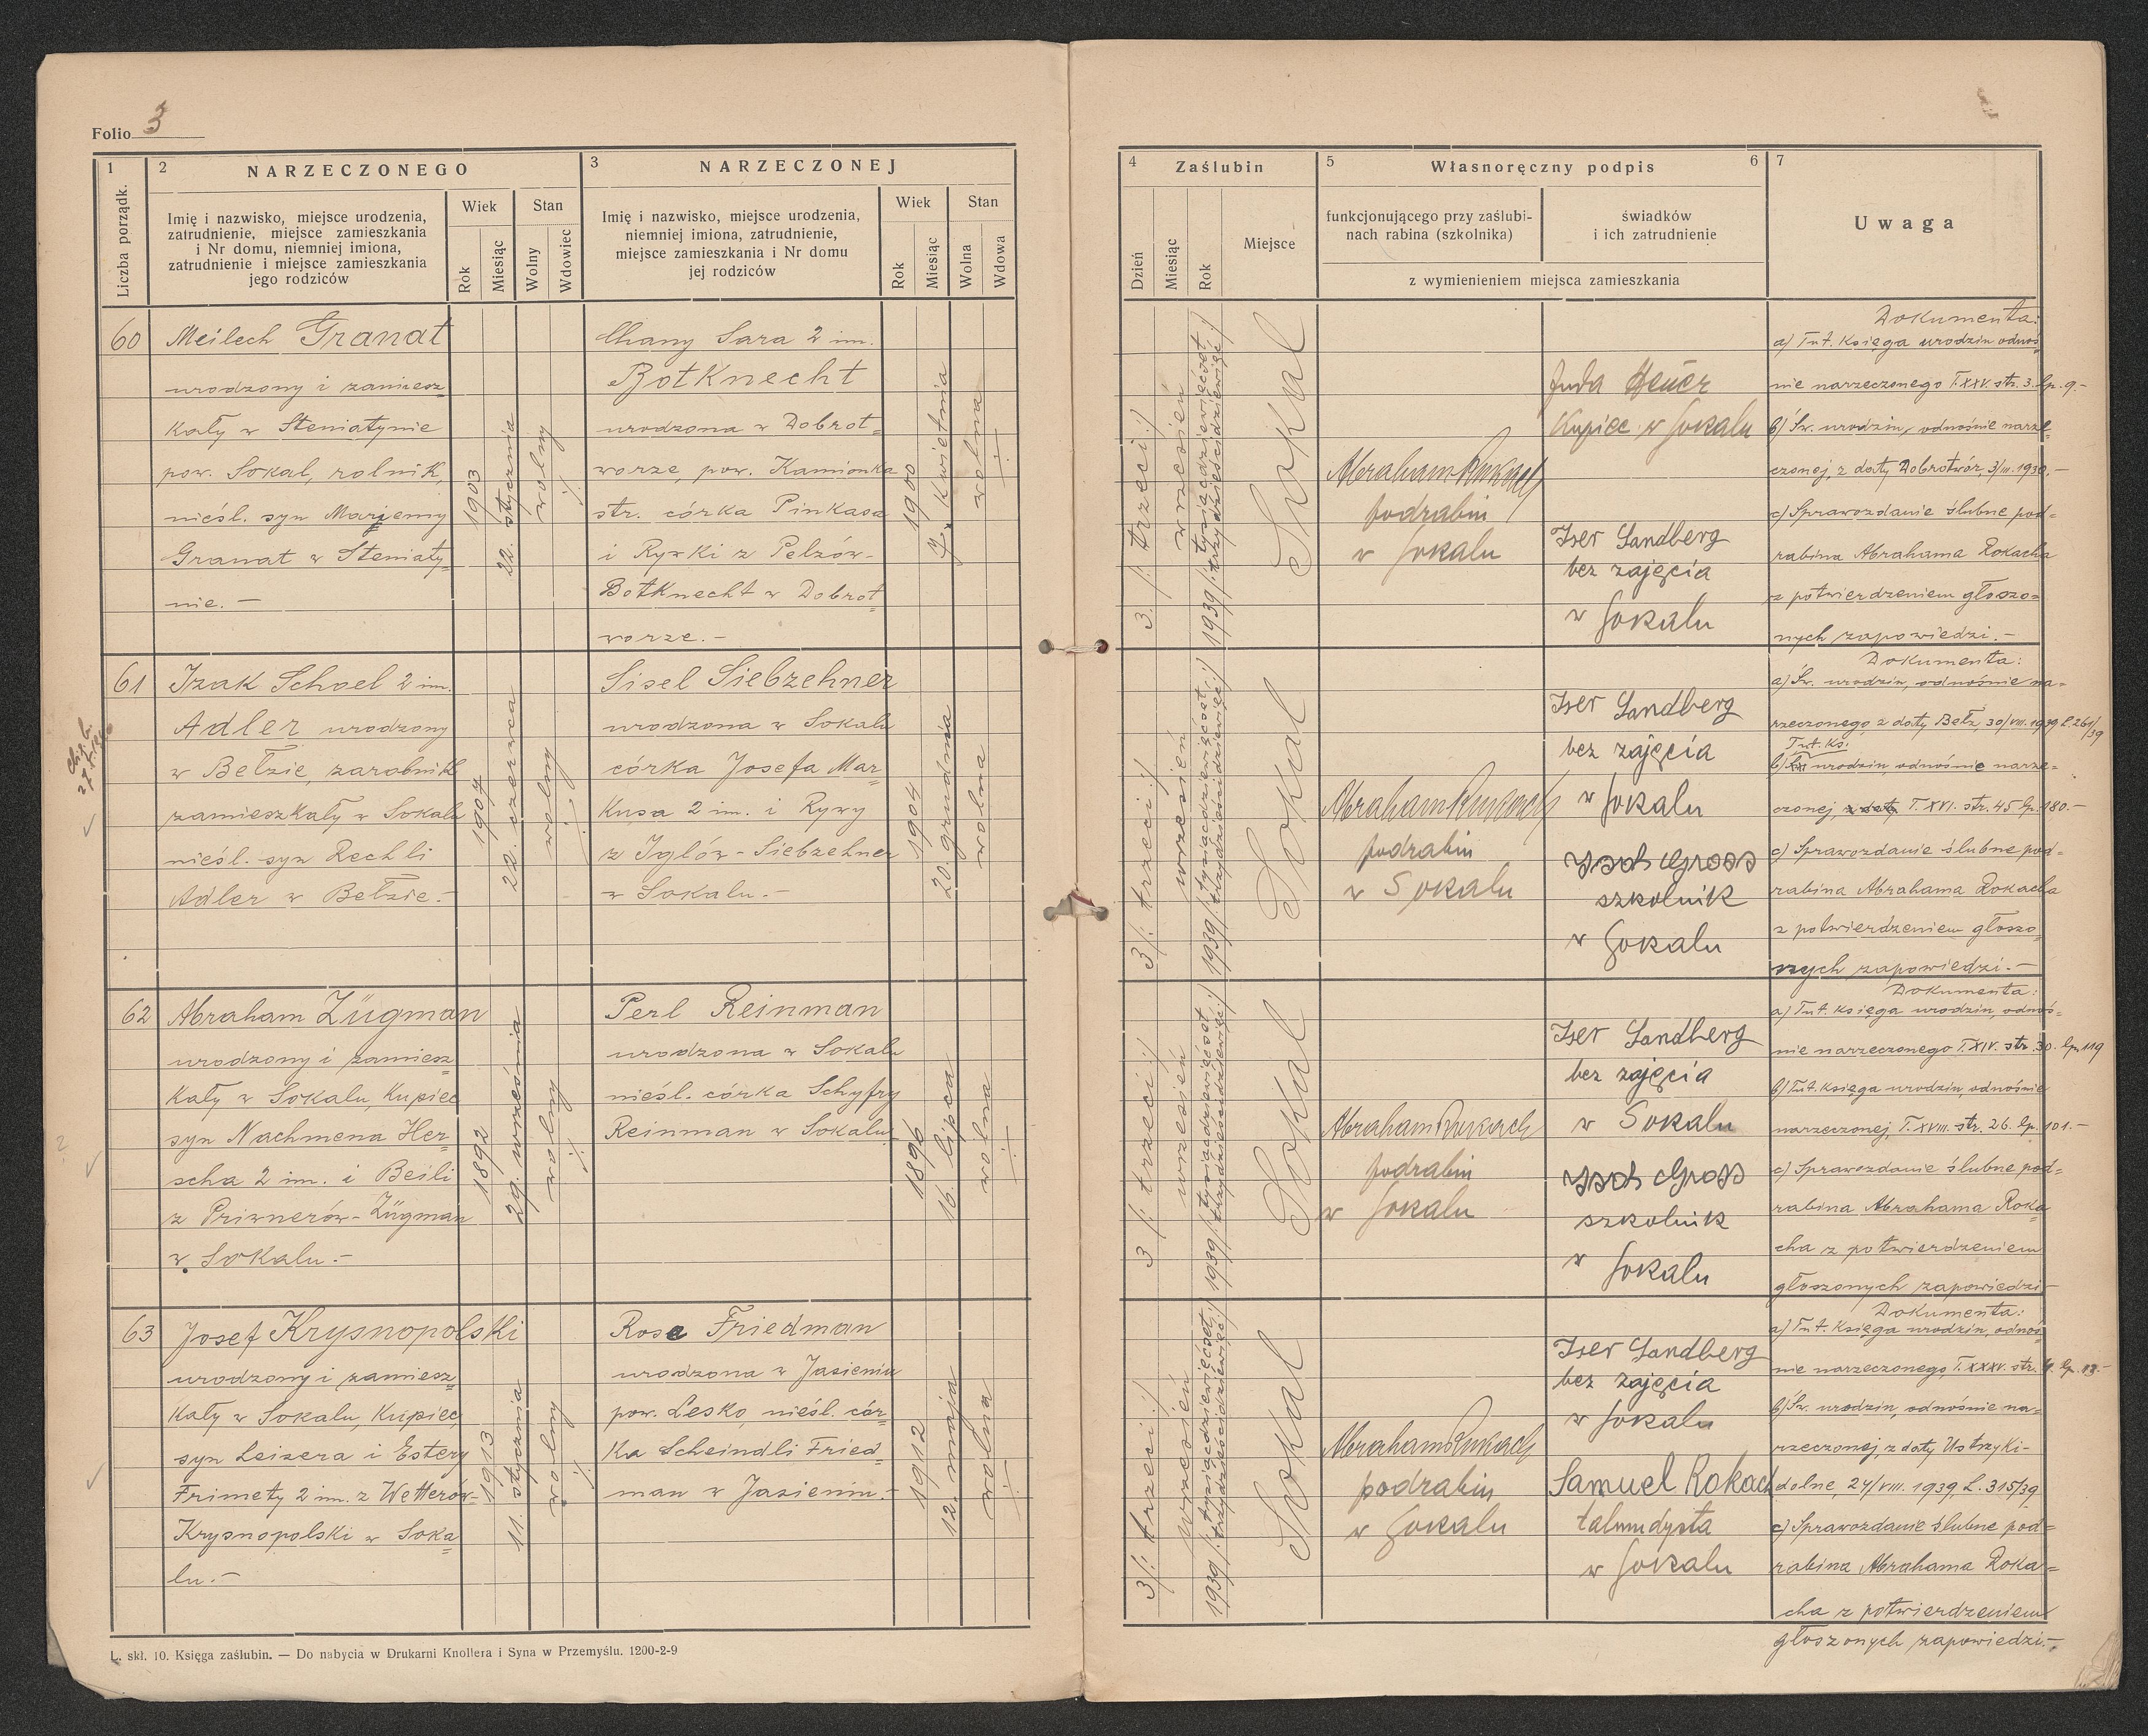 Folio 3
1
2 NARZECZONEGO
3 NARZECZONEJ
Liczba porządk.
Imię i nazwisko, miejsce urodzenia,
zatrudnienie, miejsce zamieszkania
i Nr domu, niemniej imiona,
zatrudnienie i miejsce zamieszkania
jego rodziców
Wiek
Rok
Miesiąc
Stan
Wolny
Wdowiec
Imię i nazwisko, miejsce urodzenia,
niemniej imiona, zatrudnienie,
miejsce zamieszkania i Nr domu
jej rodziców
Wiek
Rok
Miesiąc
Stan
Wolna
Wdowa
60
Meilech Granat
urodzony i zamiesz=
kały w Steniatynie
pow. Sokal, rolnik,
nieśl. syn Marjemy
Granat w Steniaty=
nie.-
1903
22. stycznia
wolny
Chany Sara 2 im.
Botknecht
urodzona w Dobrot=
worze, pow. Kamionka
str. córka Pinkasa
i Rywki z Pelzów-
Botknecht w Dobrot=
worze.-
1900
7. kwietnia
wolna
61
Izak Schoel 2 im.
Adler urodzony
w Bełzie, zarobnik
zamieszkały w Sokalu
nieśl. syn Rechli
Adler w Bełzie.-
1907
22. czerwca
wolny
Sisel Siebzehner
urodzona w Sokalu
córka Josefa Mar=
kusa 2 im. i Rywy
z Iglów-Siebzehner
w Sokalu.-
1904
20. grudnia
wolna
62
Abraham Zügman
urodzony i zamiesz=
kały w Sokalu, kupiec
syn Nachmena Her=
scha 2 im. i Beili
z Priwnerów-Zügman
w Sokalu.-
1892
29. września
wolny
Perl Reinman
urodzona w Sokalu
nieśl. córka Schyfry
Reinman w Sokalu.
1896
16. lipca
wolna
63
Josef Krysnopolski
urodzony i zamiesz=
kały w Sokalu, kupiec,
syn Leizera i Estery
Frimety 2 im. z Wetterów-
Krysnopolski w Soka=
lu.-
1913
11. stycznia
wolny
Rosa Friedman
urodzona w Jasieniu
pow. Lesko, nieśl. cór=
ka Scheindli Fried=
man w Jasieniu.-
1912
12. maja
wolna
L. skł. 10. Księga zaślubin. — Do nabycia w Drukarni Knollera i Syna w Przemyślu. 1200-2-9
4 Zaślubin
5 Własnoręczny podpis 6
7 Uwaga
Dzień
Miesiąc
Rok
Miejsce
funkcjonującego przy zaślubi-
nach rabina (szkolnika)
świadków
i ich zatrudnienie
z wymienieniem miejsca zamieszkania
3. /: trzeci :/
wrzesień
1939 /: tysiącdziewięćset
trzydzieścidziewięć :/
Sokal
Abraham Rokach
podrabin
w Sokalu
Juda Heuer
Kupiec w Sokalu
Iser Sandberg
bez zajęcia
w Sokalu
Dokumenta:
a) Tut. Księga urodzin odnoś=
nie narzeczonego T. XXV. str. 3. lp. 9.-
b) Św. urodzin, odnośnie narze=
czonej, z daty Dobrotwór, 3/III. 1930.-
c) Sprawozdanie ślubne pod=
rabina Abrahama Rokacha
z potwierdzeniem głoszo=
nych zapowiedzi.-
3 /: trzeci :/
wrzesień
1939 /: tysiącdziewięćset
trzydzieścidziewięć :/
Sokal
Abraham Rokach
podrabin
w Sokalu
Iser Sandberg
bez zajęcia
w Sokalu
Gross
szkolnik
w Sokalu
Dokumenta:
a) Św. urodzin, odnośnie na=
rzeczonego, z daty Bełz, 30/VIII. 1939 L. 261/39
Tut. Ks.
b) Św. urodzin, odnośnie narze=
czonej, z daty T. XVI. str. 45 lp. 180.-
c) Sprawozdanie ślubne pod=
rabina Abrahama Rokacha
z potwierdzeniem głoszo=
nych zapowiedzi.-
3 /: trzeci :/
wrzesień
1939 /: tysiącdziewięćset
trzydzieścidziewięć :/
Sokal
Abraham Rokach
podrabin
w Sokalu
Iser Sandberg
bez zajęcia
w Sokalu
Gross
szkolnik
w Sokalu
Dokumenta:
a) Tut. Księga urodzin, odnoś=
nie narzeczonego T. XIV. str. 30. lp. 119
b) Tut. Księga urodzin, odnośnie
narzeczonej, T. XVIII. str. 26. lp. 101.-
c) Sprawozdanie ślubne pod=
rabina Abrahama Roka=
cha z potwierdzeniem
głoszonych zapowiedzi
3 /: trzeci :/
wrzesień
1939 /: tysiącdziewięćset
trzydzieścidziewięć :/
Sokal
Abraham Rokach
podrabin
w Sokalu
Iser Sandberg
bez zajęcia
w Sokalu
Samuel Rokach
talmudysta
w Sokalu
Dokumenta:
a) Tut. Księga urodzin, odnoś=
nie narzeczonego, T. XXXV. str. lp. 13.-
b) Św. urodzin, odnośnie na=
rzeczonej, z daty Ustrzyki-
dolne, 24/VIII. 1939, L. 315/39
c) Sprawozdanie ślubne pod=
rabina Abrahama Roka=
cha z potwierdzeniem
głoszonych zapowiedzi.-